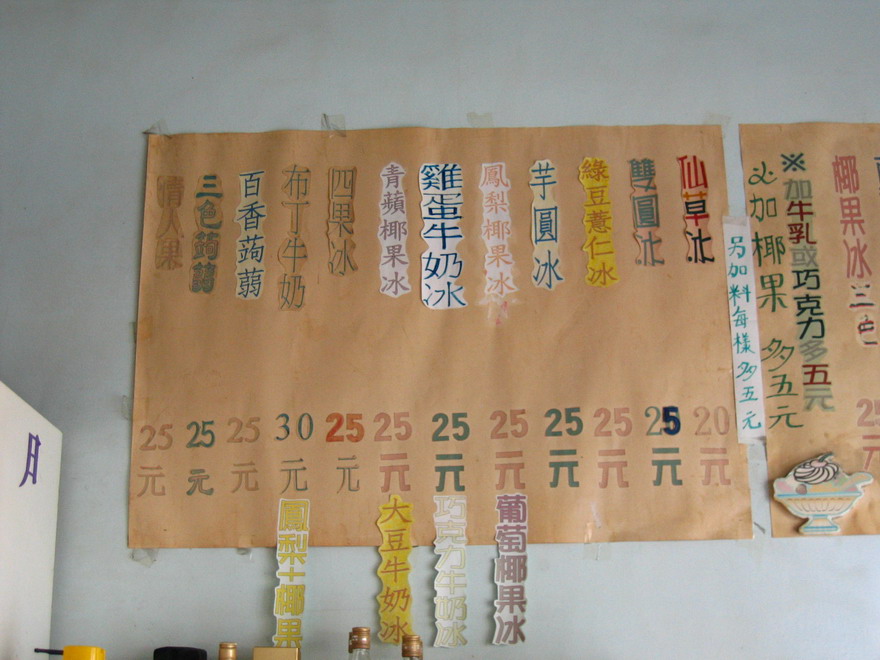 椰果冰
三色
※加牛乳或巧克力多五元
必加椰果 多五元
另加料每樣多五元
仙草冰
20元
雙圓冰
25元
綠豆薏仁冰
25元
芋圓冰
25元
鳳梨椰果冰
25元
葡萄椰果冰
雞蛋牛奶冰
25元
巧克力牛奶冰
青蘋椰果冰
25元
大豆牛奶冰
四果冰
25元
布丁牛奶
30元
鳳梨+椰果
百香蒟蒻
25元
三色蒟蒻
25元
情人果
25元
月